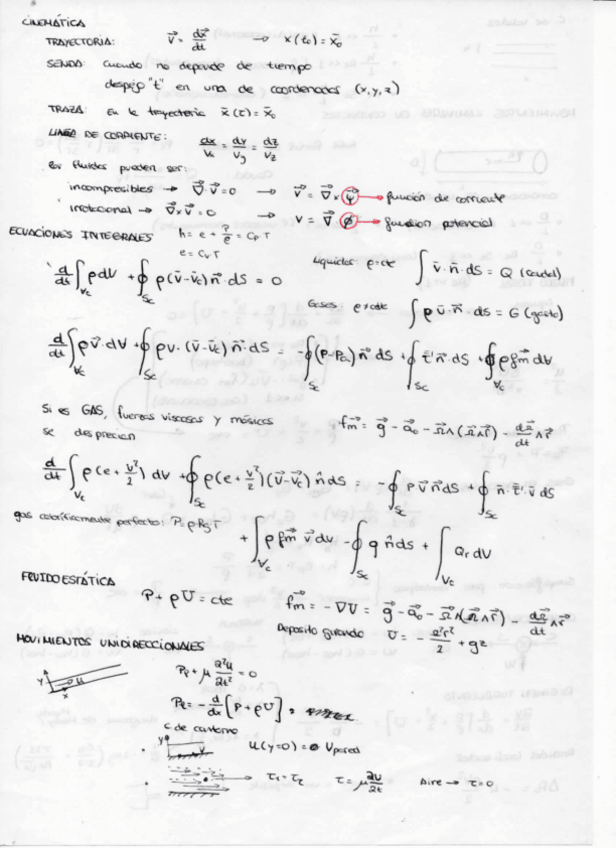 CINEMÁTICA
TRAYECTORIA: v⃗ = dx⃗/dt → x(t₀) = x⃗₀
SENDA: Cuando no depende de tiempo
despejo "t" en una de coordenadas (x, y, z)
TRAZA: En la trayectoria x⃗(t) = x⃗₀
LINEA DE CORRIENTE: dx/Vx = dy/Vy = dz/Vz
los fluidos pueden ser:
incompresibles → ∇⃗·V⃗ = 0 → V⃗ = ∇⃗ x ψ⃗ → función de corriente
irrotacional → ∇⃗ x V⃗ = 0 → V = ∇⃗ φ → función potencial
ECUACIONES INTEGRALES h = e + P/ρ = Cp·T
e = Cv·T
d/dt ∫Vc ρ dV + ∮Sc ρ(v̄ - v̄c) n⃗ · dS = 0
Liquidos ρ=cte ∫ v̄·n̄ · dS = Q (caudal)
Gases ρ≠cte ∫ ρ v̄·n⃗ · dS = G (gasto)
d/dt ∫Vc ρ v⃗ · dV + ∮Sc ρv · (v̄ - v̄c) n⃗ dS = -∮Sc (P-Pa) n⃗ dS + ∮Sc τ̄' n⃗ · dS + ∮Vc ρ f⃗m dV
Si es GAS, fuerzas viscosas y másicas
se desprecian
f⃗m = g⃗ - a⃗₀ - Ω⃗∧(Ω⃗∧r⃗) - dΩ⃗/dt ∧ r⃗
d/dt ∫Vc ρ(e + v²/2) dV + ∮Sc ρ(e + v²/2)(v⃗ - v⃗c) n̂ dS = -∮Sc P v⃗ n⃗ dS + ∮Sc n̄ · τ̄' · v̄ dS
gas calorificamente perfecto: P = ρRgT
+ ∫Vc ρ f⃗m v⃗ dv - ∮Sc q n̂ ds + ∫Vc Qr dV
FLUIDOESTÁTICA
P + ρU = cte
f⃗m = -∇U = g⃗ - a⃗₀ - Ω⃗∧(Ω⃗∧r⃗) - dΩ⃗/dt ∧ r⃗
Deposito girando U = - Ω²r²/2 + gz
MOVIMIENTOS UNIDIRECCIONALES
y x u
Pl + μ ∂²u/∂t² = 0
Pl = - d/dx [P + ρU]
c de contorno
y v u(y=0) = Vpared
τ₁ = τ₂ τ = μ ∂u/∂t Aire → τ=0